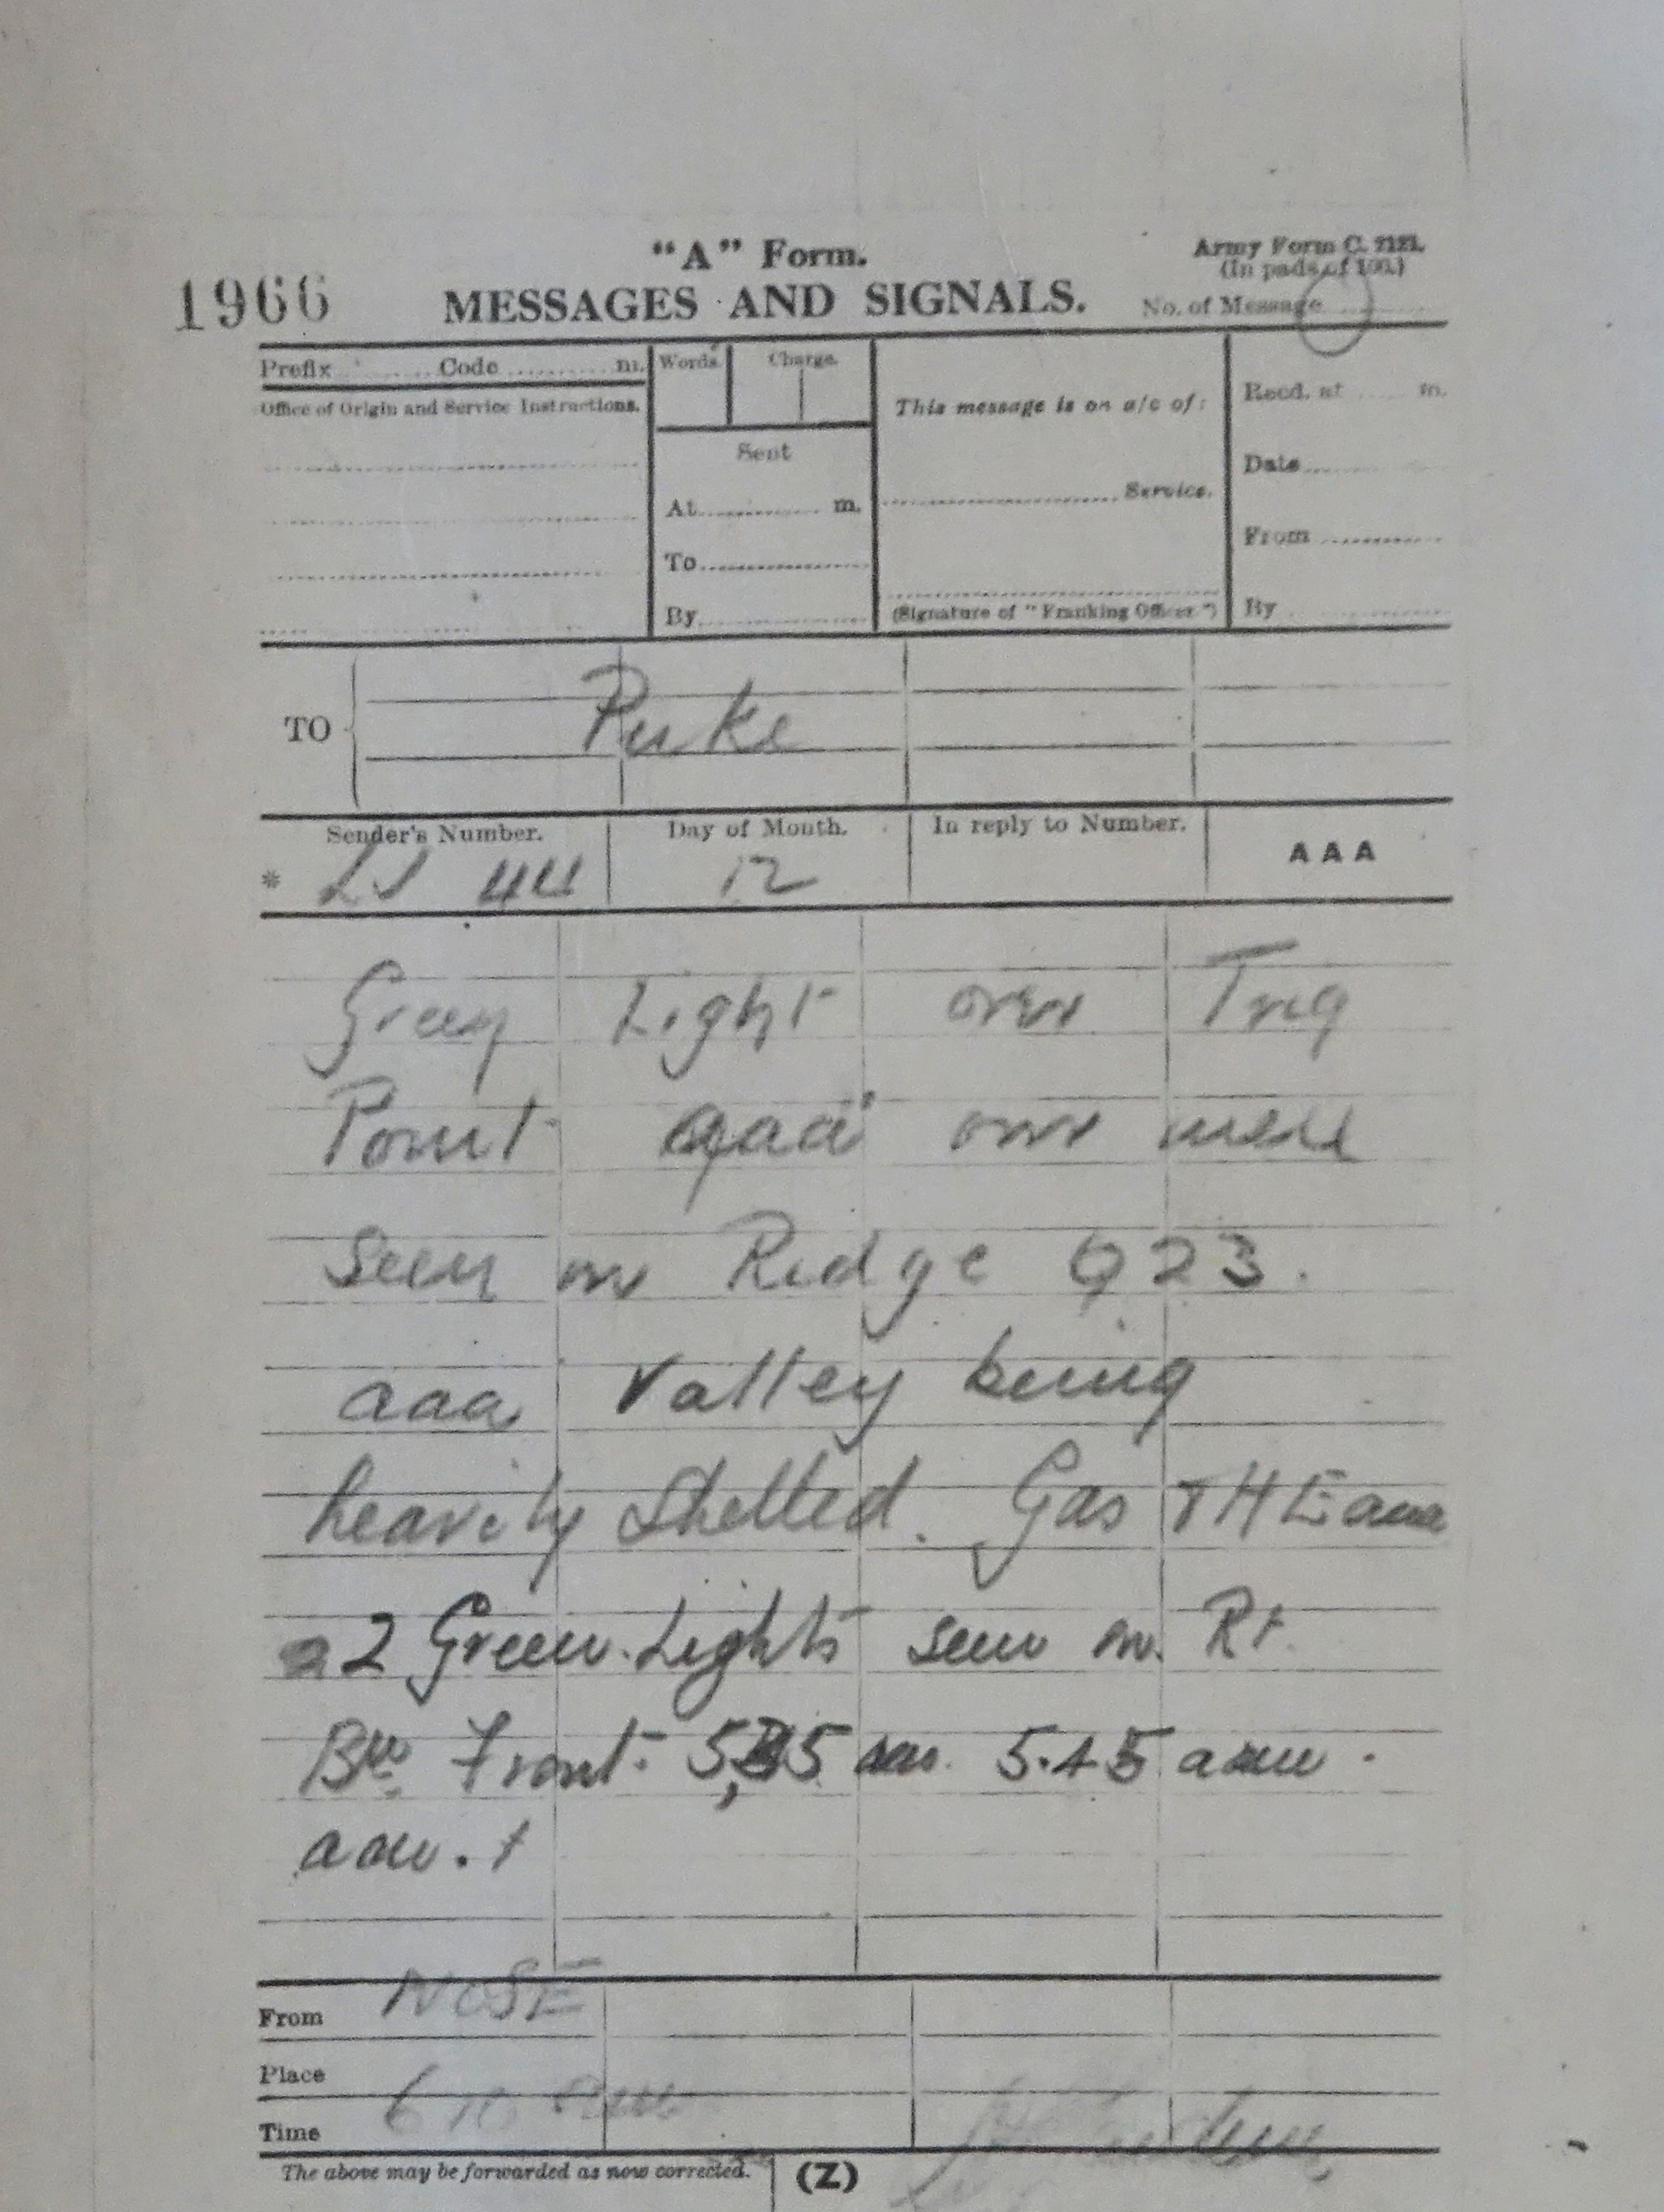 "A" Form.
Army Form C. 2121.
(In pads of 100.)
1966
MESSAGES AND SIGNALS.
No. of Message
Prefix Code m.
Words. Charge.
This message is on a/c of:
Recd. at m.
Office of Origin and Service Instructions.
Sent
Date
At m.
Service.
From
To
By
(Signature of "Franking Officer.")
By
TO
Puke
Sender's Number.
Day of Month.
In reply to Number.
AAA
* LJ 44
12
Green Light over Trig
Point aaa our men
seen on Ridge Q23.
aaa Valley being
heavily Shelled. Gas & HE aaa
2 Green Lights seen on Rt
Bn Front. 5.45 am.
From NOSE
Place
Time 6 10
The above may be forwarded as now corrected.
(Z)